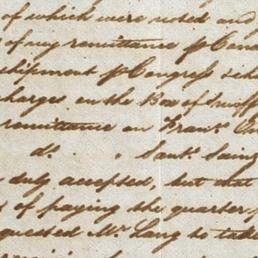 of which were noted and
of my remittance p
shipment p Congress
charges on the Box of
remittance on Fran.
do.
duly accepted, but that
of paying the quarter
quested Mr. Lang to take